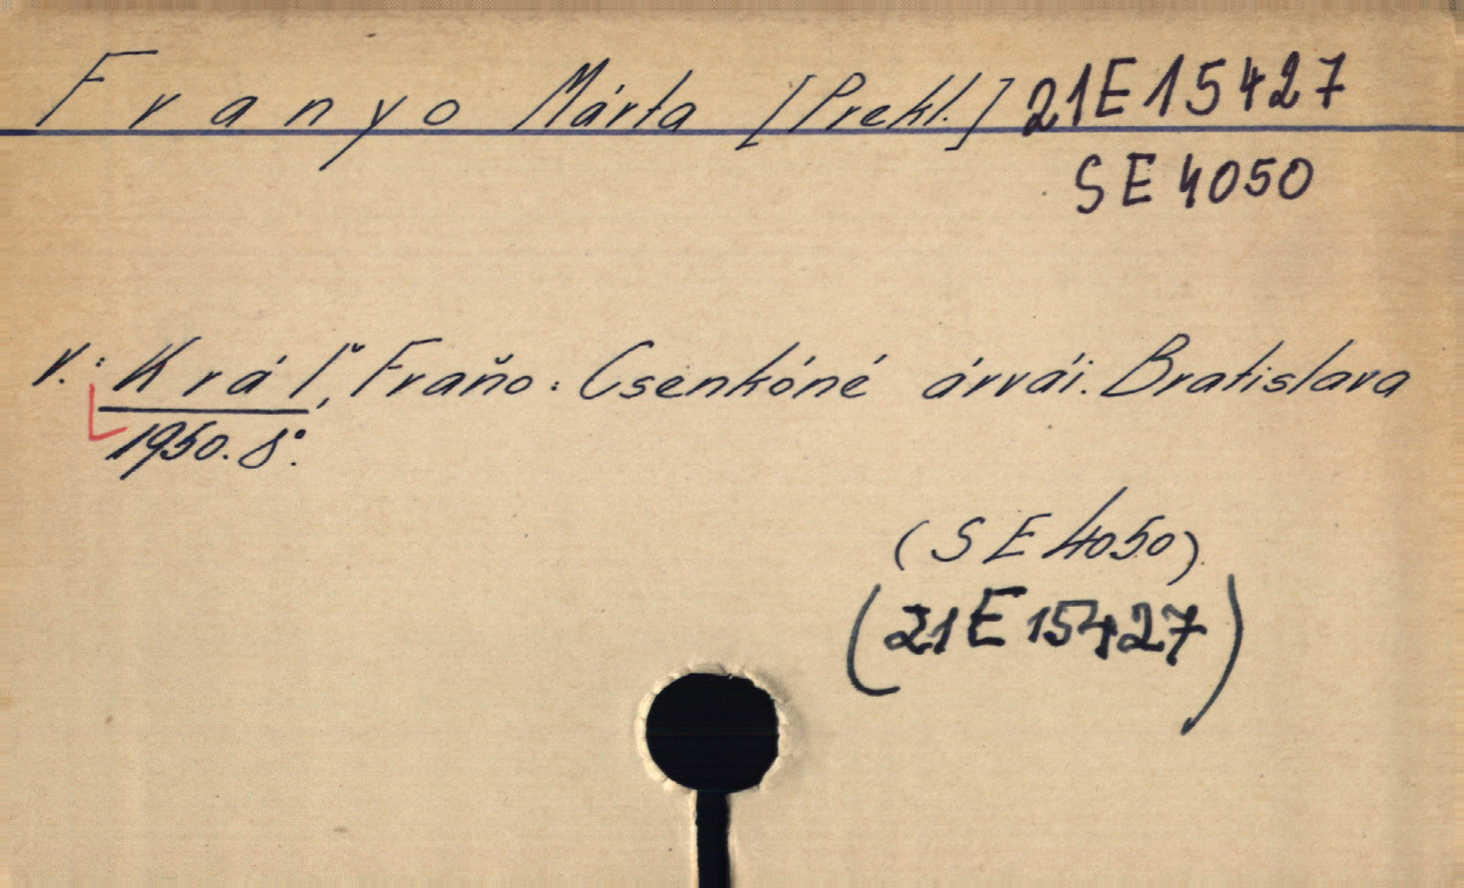 Franyo Márta [Prekl.] 21E15427
SE 4050
v.: Kráľ, Fraňo: Csenkóné árvái. Bratislava
1950. 8°.
(SE 4050)
(21E15427)